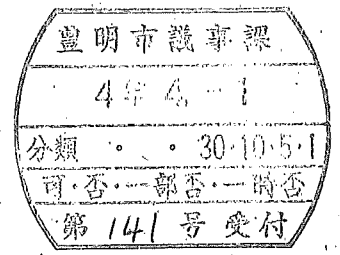 豊明市議事課
4年4.-1
分類 ・ ・ 30・10・5・1
可・否・一部否・一時否
第141号受付